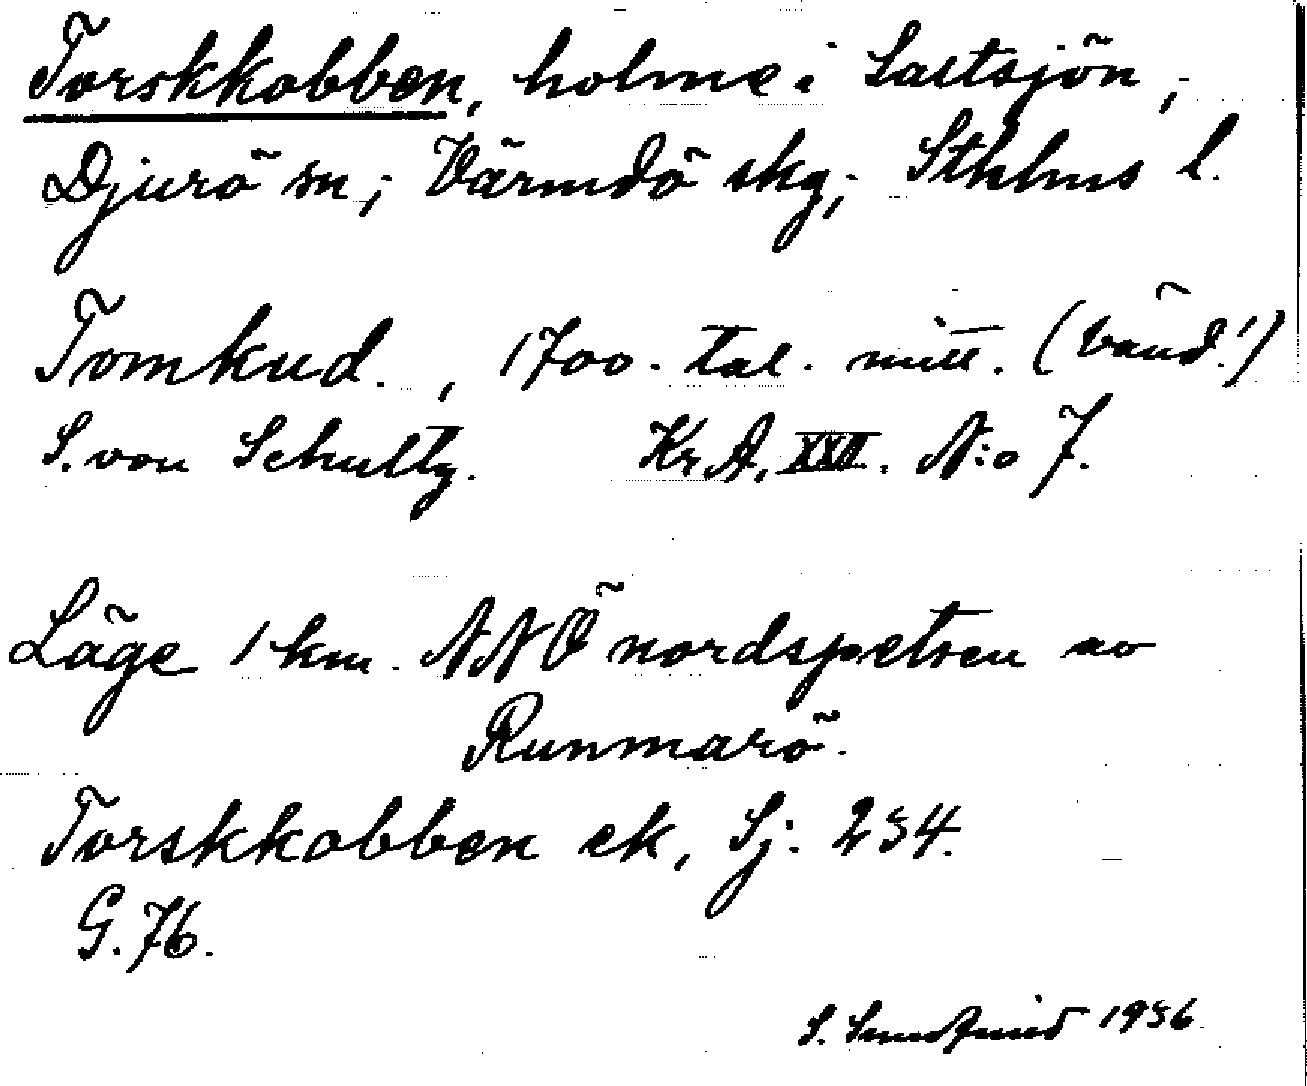 Torskkobben, holme i Saltsjön,
Djurö sn; Värmdö skg; Sthlms l.
Tomkud., 1700-tal. mitt. (vänd!)
S. von Schultz. Kr.A. XXII. N:o 7.
Läge 1 km. NNÖ nordspetsen av
Runmarö.
Torskkobben ek, Sj: 234.
G. 76.
S. 1936